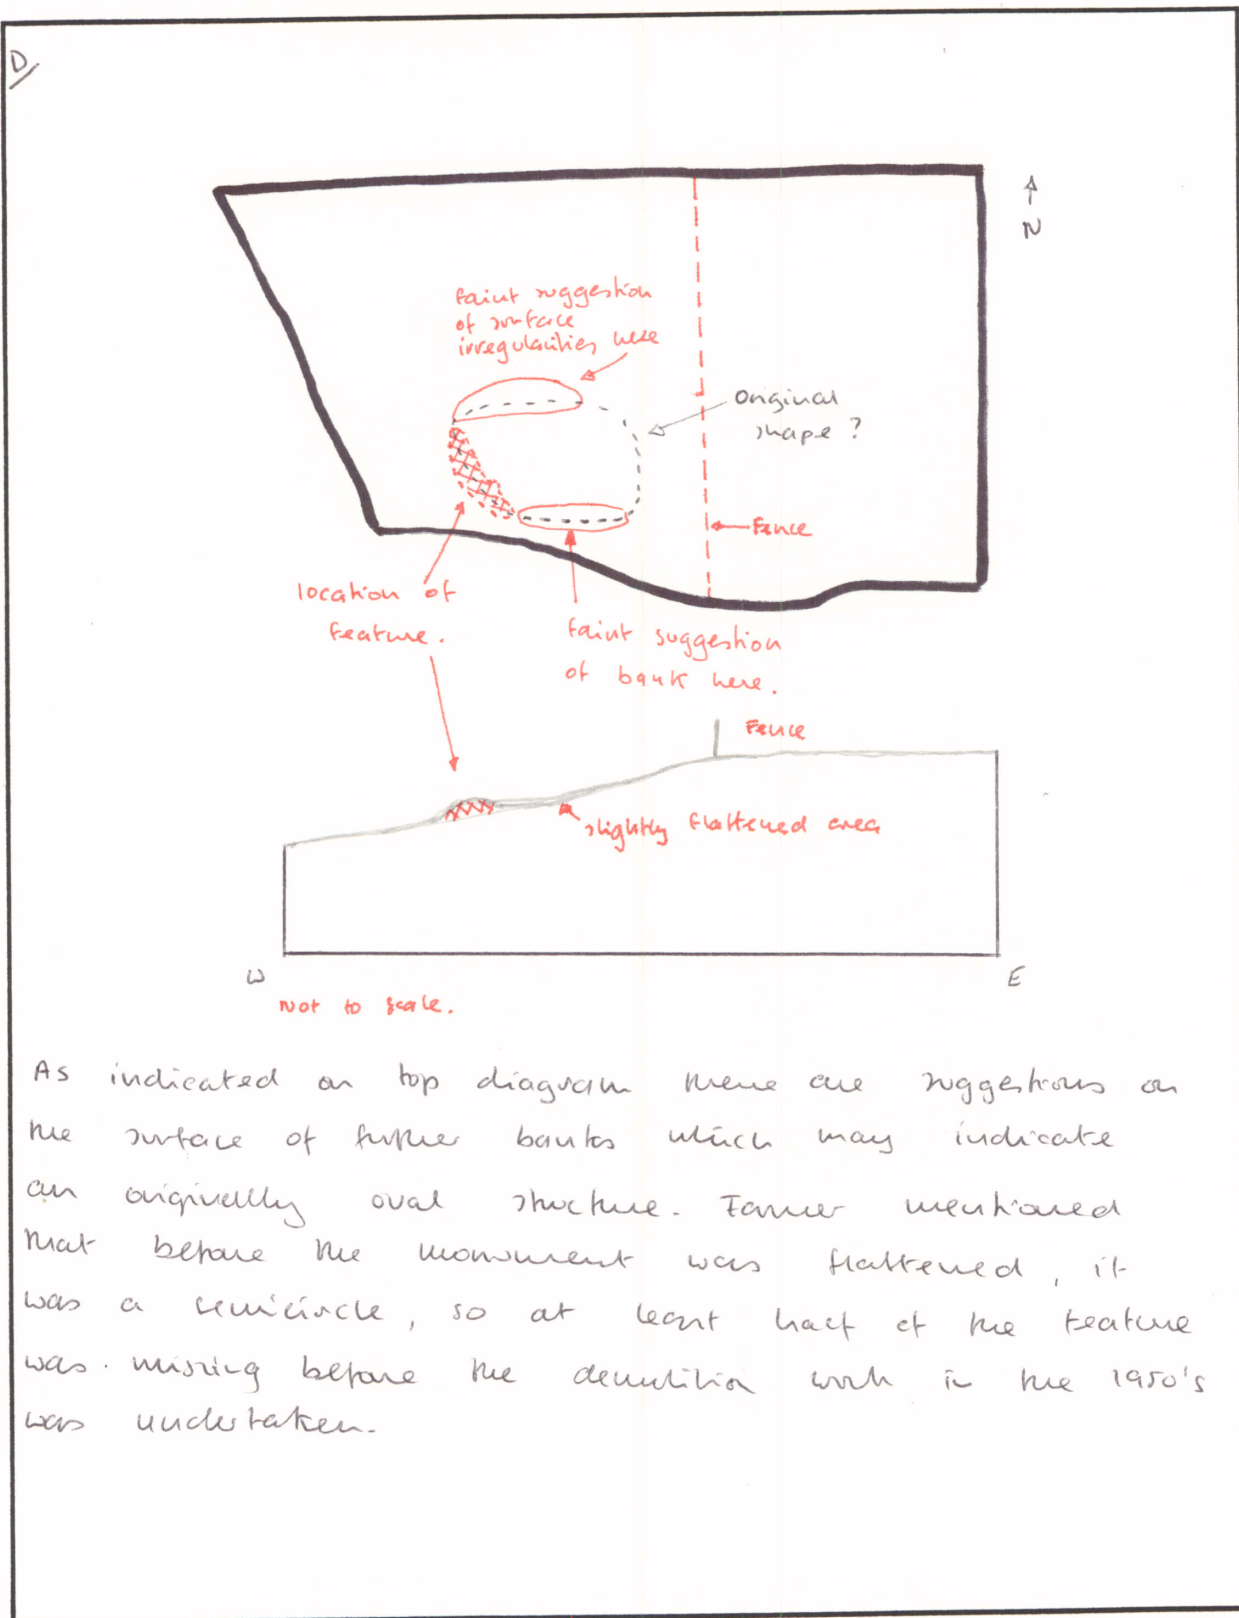 D/
↑
N
faint suggestion
of surface
irregularities here
original
shape ?
Fence
location of
feature.
faint suggestion
of bank here.
Fence
slightly flattened area
W
E
Not to scale.
As indicated on top diagram there are suggestions on
the surface of further banks which may indicate
an originally oval structure. Farmer mentioned
that before the monument was flattened, it
was a semicircle, so at least half of the feature
was missing before the demolition work in the 1950's
was undertaken.